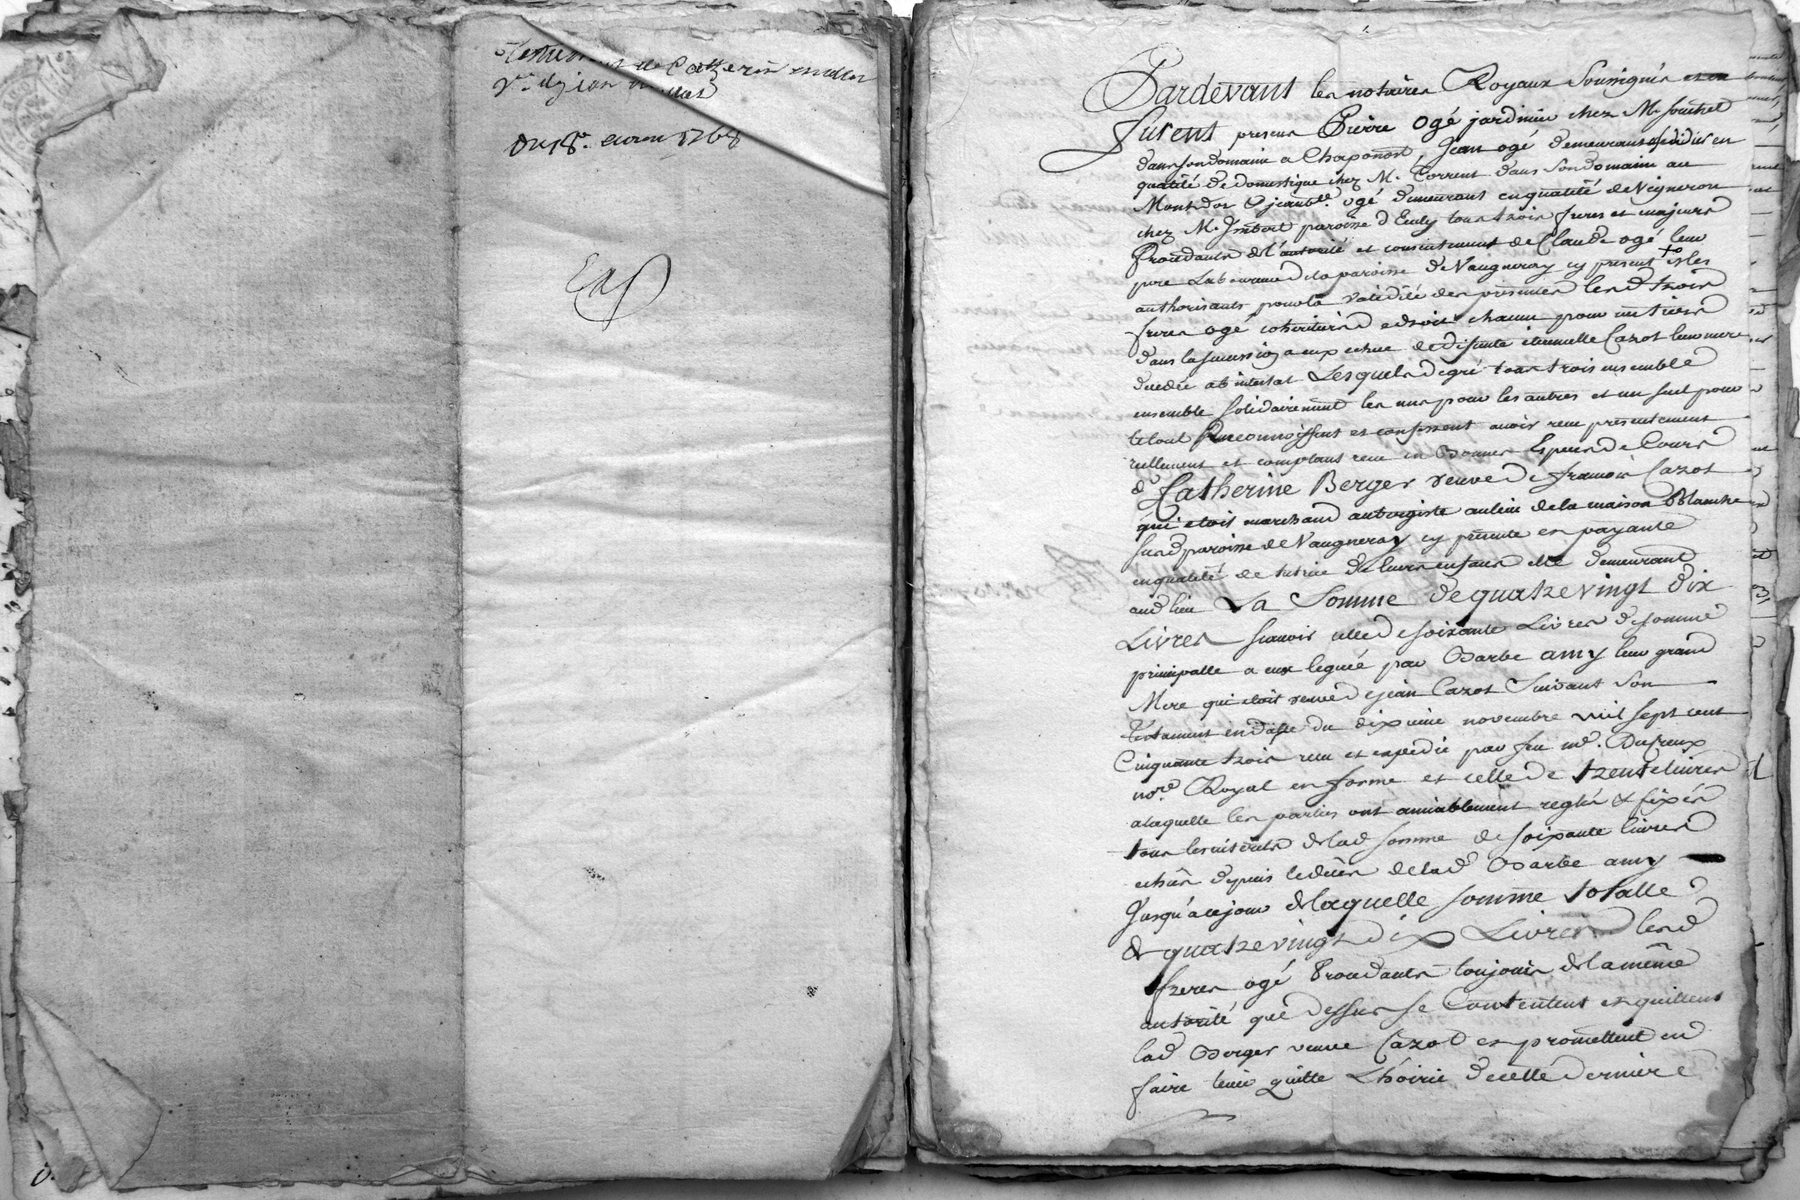 Testament de Catherine
Vve de jean
Du 18e. avril 1768
Pardevant les notaires Royaux Soussignés et
furent presens Pierre ogé jardinier chez M. souchet
dans son domaine a Chaponost, Jean ogé demeurant
qualité de domestique chez M. Torrent dans son domaine au
Montdor & jean bte. ogé demeurant en qualité de Vigneron
chez M. Imbert paroisse d'Eculy tous trois freres et majeurs
Procedants de l'autorité et consentement de Claude ogé leur
pere Laboureur de la paroisse de Vaugneray cy present
authorisants pour la validité des presentes lesd. trois
freres ogé cohéritiers de droit chacun pour un tiers
dans la succession a eux echue de defunte etiennette Cazot leur mere
decedée ab intestat Lesquels de gré tous trois ensemble
ensemble solidairement les uns pour les autres et un seul pour
le tout Reconnoissent et confessent avoir reçu presentement
reellement et comptant en bonnes Especes de Cours
de Catherine Berger veuve de francois Cazot
qui etoit marchand aubergiste au lieu de la maison Blanche
susd. paroisse de Vaugneray cy presente et payante
en qualité de tutrice de leurs enfans elle demeurant
aud. lieu La Somme de quatrevingt dix
Livres scavoir celle de soixante Livres de somme
principalle a eux leguée par Barbe amy leur grand
Mere qui etoit veuve de jean Cazot Suivant Son
Testament en datte du dixieme novembre mil sept cent
Cinquante trois recu et expedié par feu me. Dufreux
nore. Royal en forme et celle de trente livres
a laquelle les parties ont amiablement reglés & fixés
tous les interets de lad. somme de soixante livres
echus depuis le décès de lad. Barbe amy
Jusqu'a ce jour de laquelle somme totalle
de quatrevingt dix Livres lesd.
freres ogé Procedants toujours de la même
autorité que dessus se Contentent et quittent
lad. Berger veuve Cazot et promettent en
faire tenir quitte L'hoirie de cette derniere